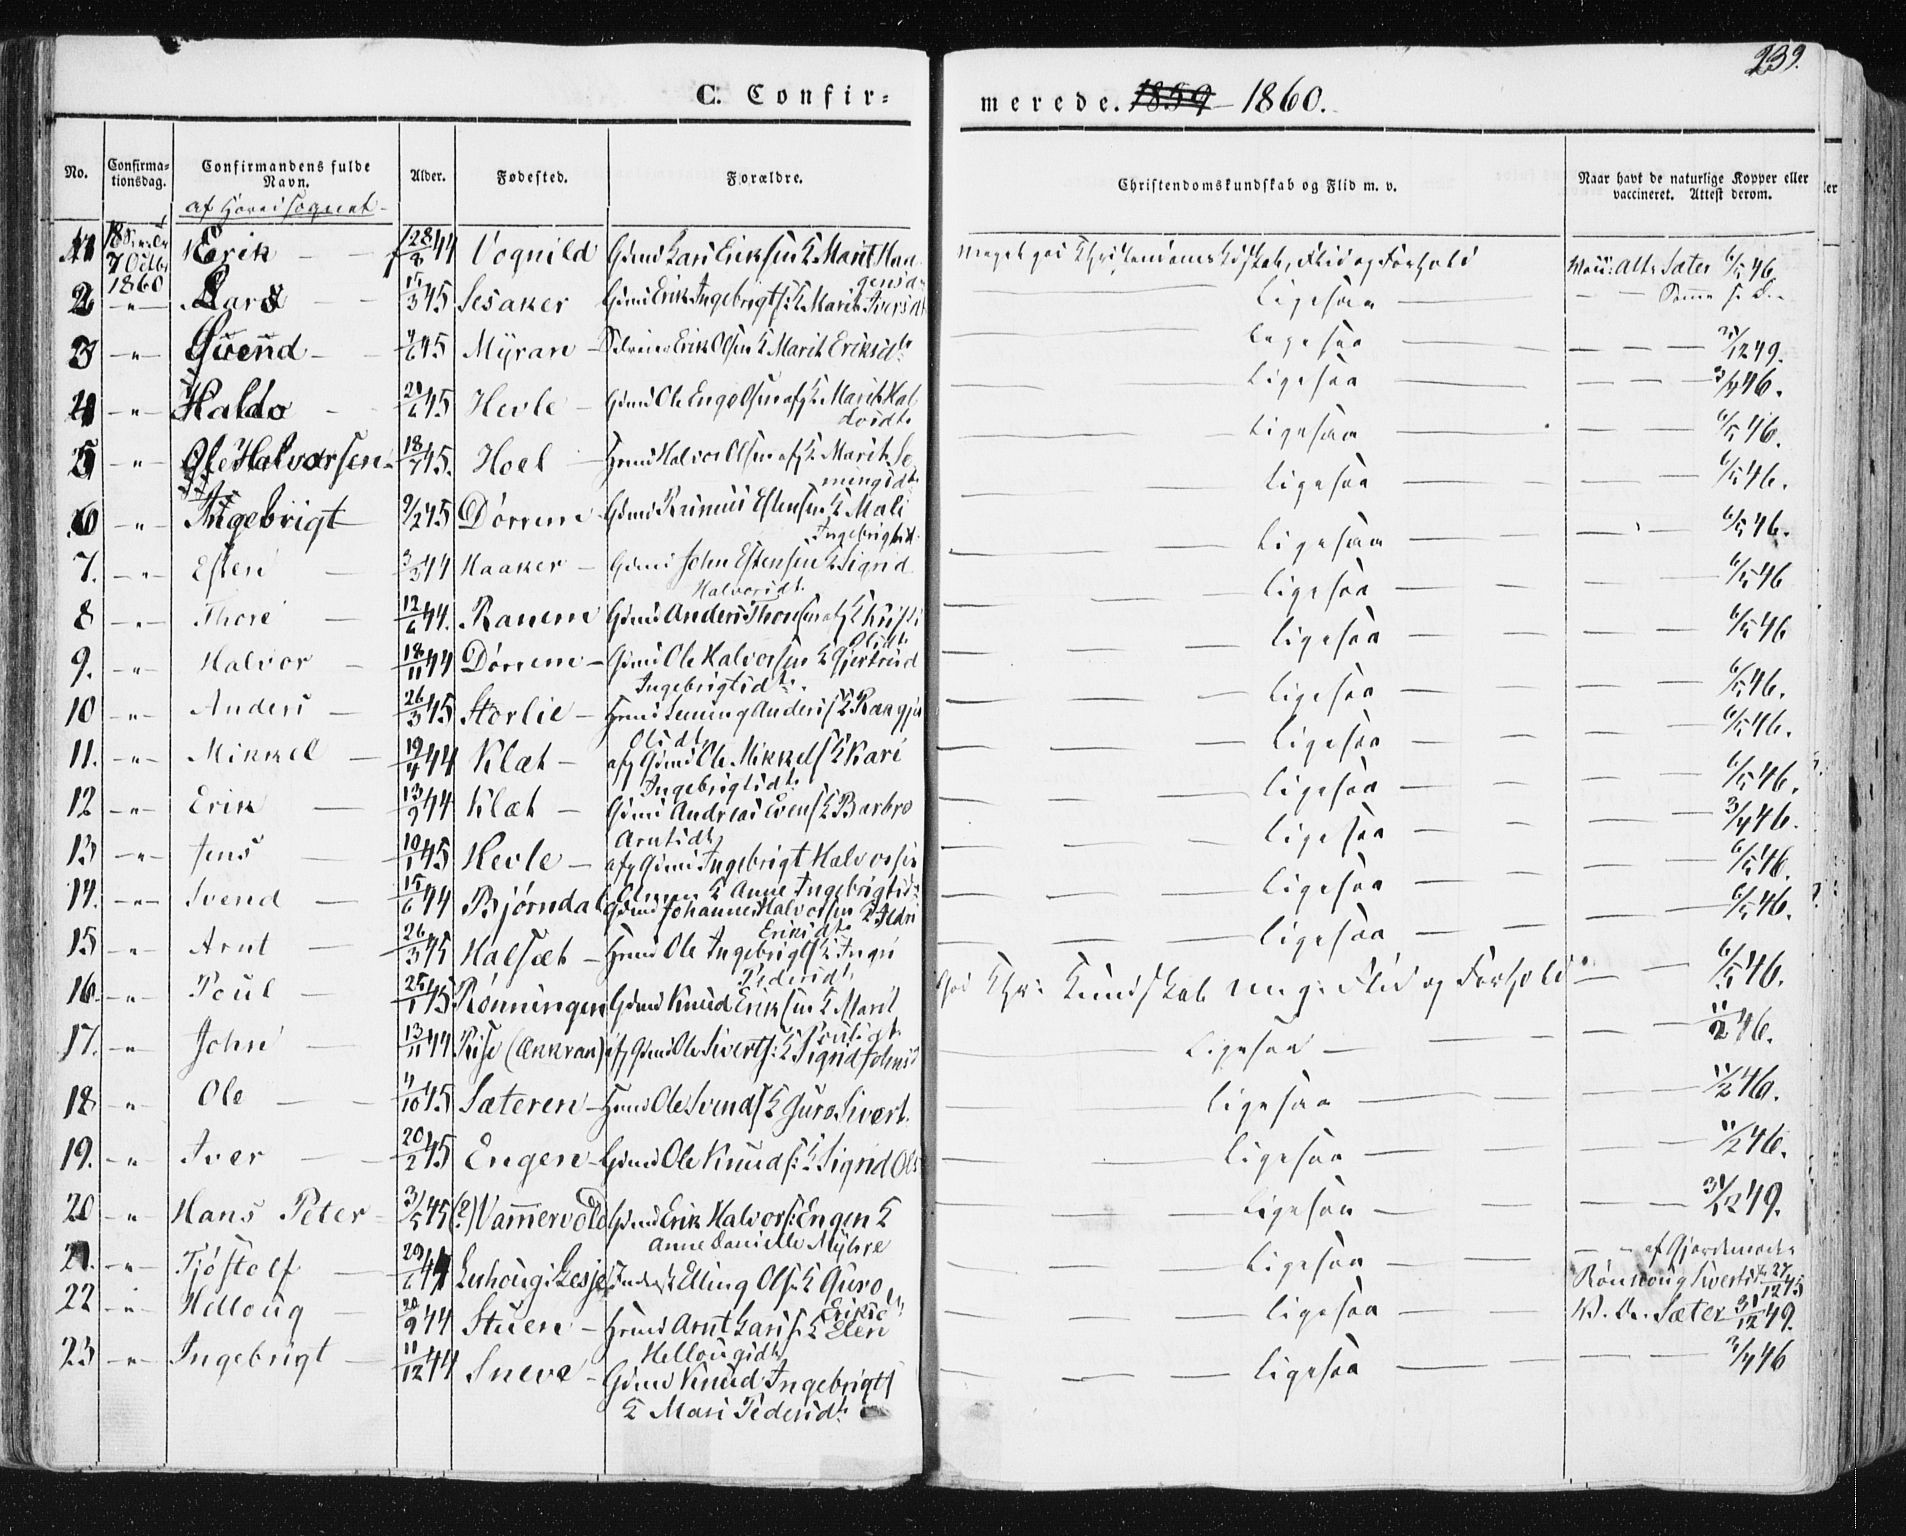 239.
C. Confirmerede. 1859 - 1860.
No. Confirmationsdag. Confirmandens fulde Navn. Alder. Fødested. Forældre. Christendomskundskab og Flid m. v. Naar havt de naturlige Kopper eller vaccineret. Attest derom.
af Hovedsognet
1 7 Octbr 1860 Erik 28/8 44 Vognild Gmd Lars Eriksen & Marit Haagensd. Meget god Christendomskdskab, Flid og Forhold Sæter 6/5 46
2 - " - Lars 15/3 45 Sesaker Gmd Erik Ingebrigts: & Marit Iversdt Ligesaa
3 - " - Svend 45 Myran Erik Olsen & Marit Eriksdt. Ligesaa 31/12 49.
4 - " - Haldo 21/6 45 Hevle Gmd Ole Engelsen & Marit Haldosdt. Ligesaa 3/4 46.
5 - " - Ole Halvorsen 18/7 45. Hoel Hmd Halvor Olsen & Marit Semingsdt. Ligesaa 6/5 46.
6 - " - Ingebrigt 9/2 45 Dørrem Gmd Rasmus Estensen & Mali Ingebrigtsd. Ligesaa 6/5 46.
7. - " - Esten 3/3 44 Haaker Gmd John Estensen & Sigrid Halvorsdt. Ligesaa 6/5 46.
8 - " - Thore 12/6 44. Ranem Gmd Anders Thoresen & Kristi Olsdt. Ligesaa 6/5 46
9. - " - Halvor 18/11 44 Dørrem Gmd Ole Halvorsen & Gjertrud Ingebrigtsdt. Ligesaa 6/5 46
10 - " - Anders 26/3 45 Storlie Hmd Seming Anders & Rangjei Olsdt. Ligesaa 6/5 46.
11. - " - Mikkel 19/4 44 Klæt afg Gmd Ole Mikkels & Kari Ingebrigtsdt. Ligesaa 6/5 46.
12 - " - Erik 13/9 44 Klæt Gmd Andreas Evens & Barbro Arntsdt. Ligesaa 6/5 46.
13 - " - Jens 19/1 45 Hevle afg Gmd Ingebrigt Halvorsen & Anne Ingebrigtsdt. Ligesaa 3/4 46.
14. - " - Svend 15/6 44 Bjørndal Gmd Johannes Halvorsen & Eriksdt. Ligesaa 6/5 46.
15 - " - Arnt 26/3 45 Halsæt Hmd Ole Ingebrigts & Ingri Pedersdt. Ligesaa 6/5 46.
16. - " - Poul 25/1 45 Rønningen Gmd Knud Eriksen & Marit Poulsdt. God Chr: Kundskab meg: Flid og Forhold 6/5 46.
17. - " - John 13/11 44 Rise (Ækkran) afg Gmd Ole Siverts: & Sigrid Johnsd Ligesaa 11/2 46.
18 - " - Ole 11/10 45 Sæteren Hmd Ole Svends & Guro Sivert. Ligesaa 11/2 46.
19. - " - Iver 20/2 45 Engen Gmd Ole Knuds: & Sigrid Ols Ligesaa 11/2 46.
20 - " - Hans Peter 3/5 45 (?) Vammervold Gmd Erik Halvors: Engen & Anne Danielle Myhre Ligesaa 31/12 49.
21. - " - Tjøstolf 29/6 44 Lesje Inderst Elling Ols: & Guro Eriksd Ligesaa af Gjordemoder Rønnoug Sivertsdt. 27/12 45
22 - " - Helloug 20/9 44 Stuen Hmd Arnt Lars & Elen Hellougsdt Ligesaa Sæter 31/12 49.
23 - " - Ingebrigt 11/12 44 Sneve Gmd Knud Ingebrigts & Mari Pedersdt. Ligesaa 3/4 46